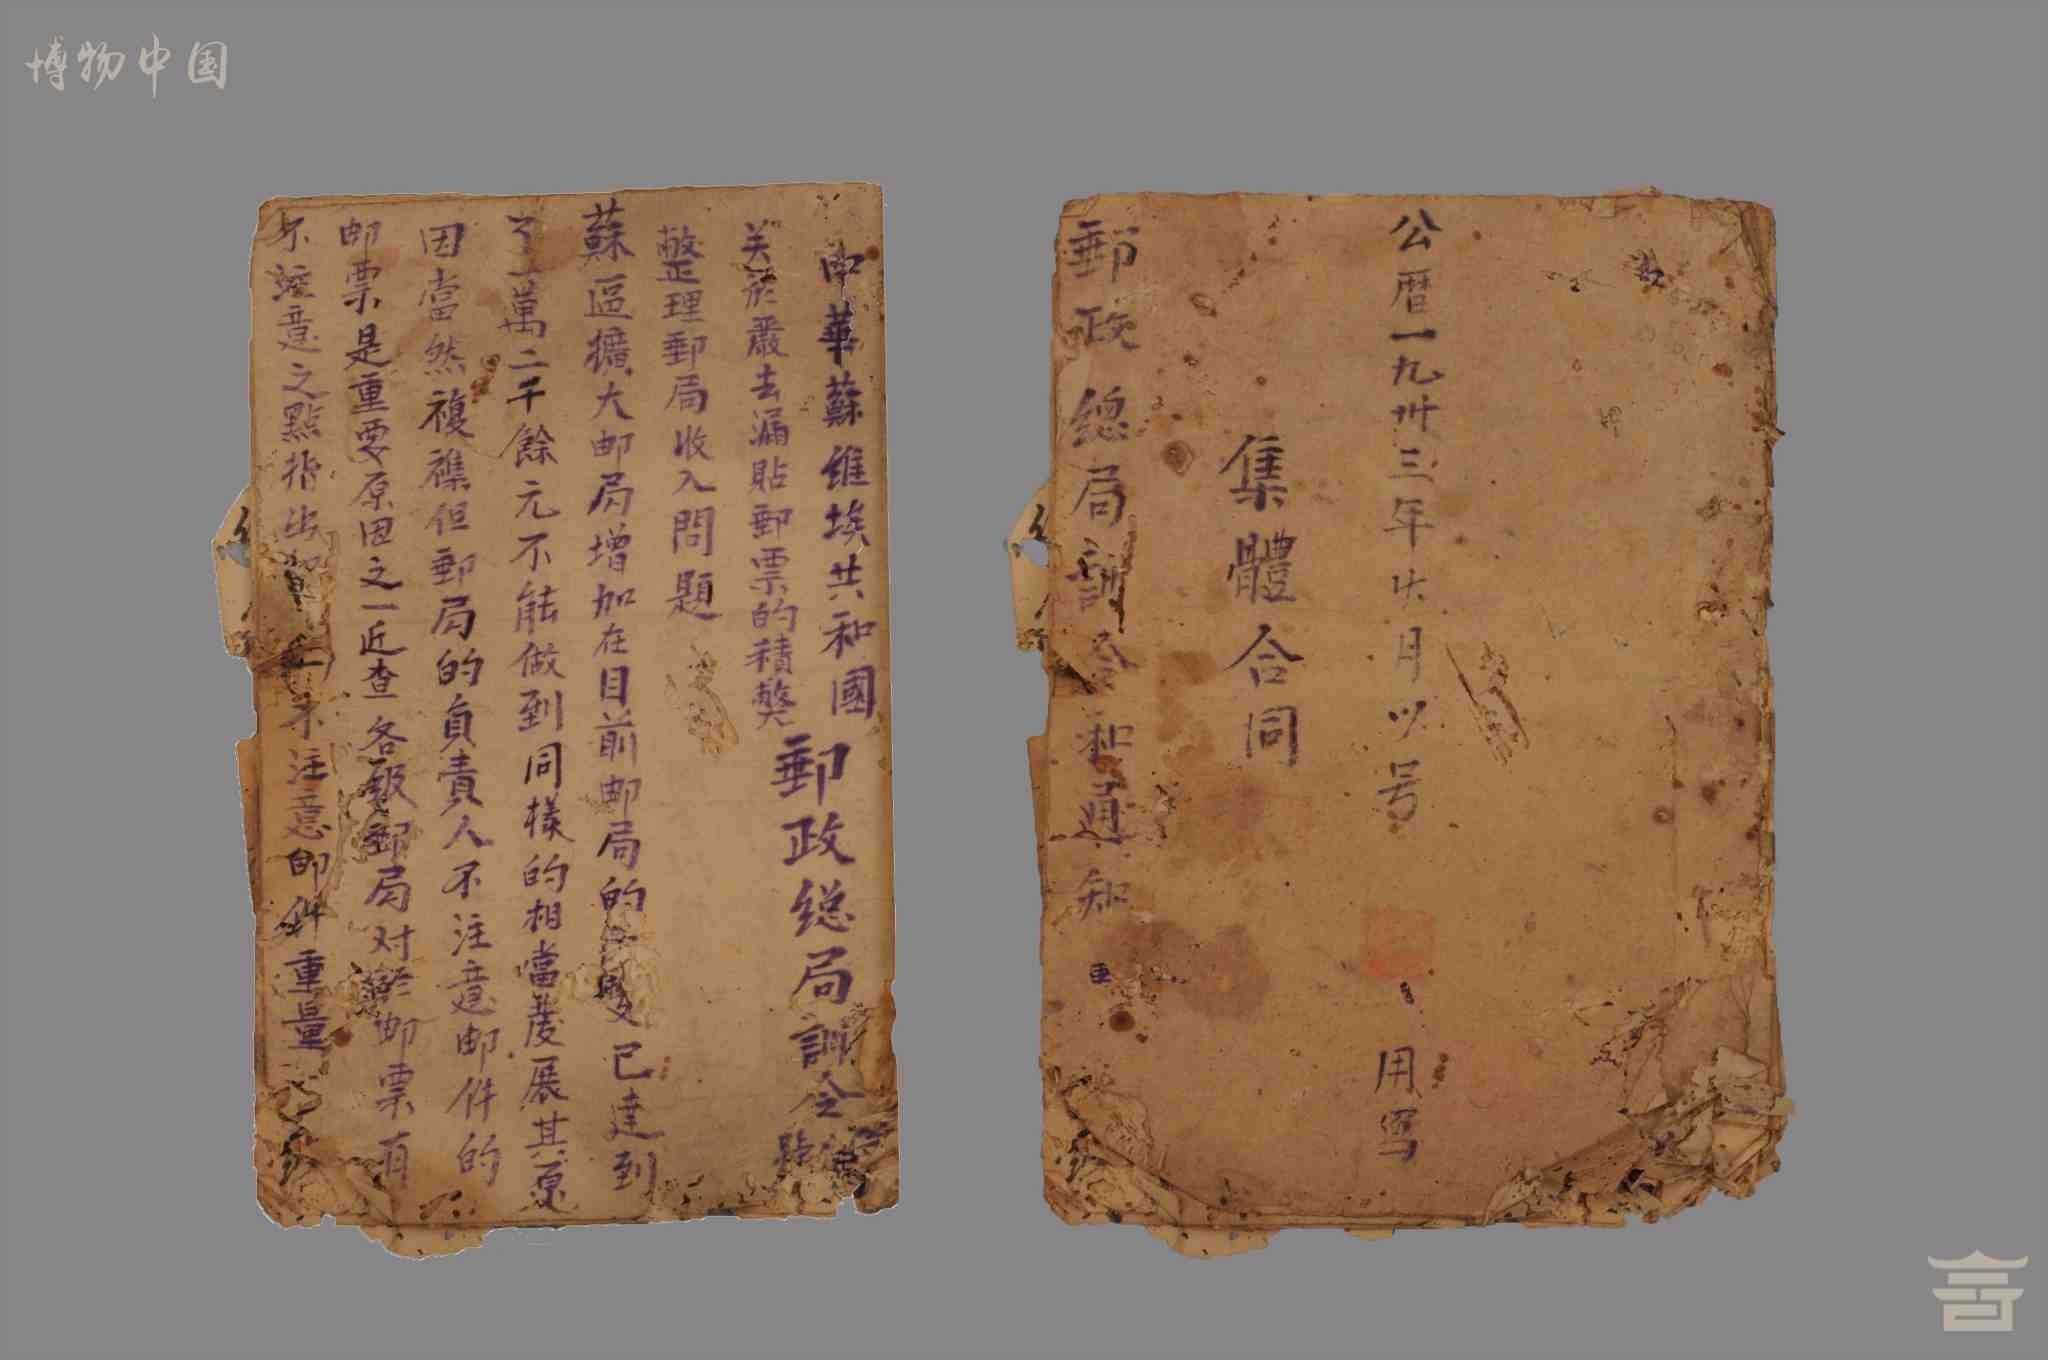 博物中国
中華蘇維埃共和國
郵政総局訓令
关於嚴去漏貼郵票的積獘
整理郵局收入問題
蘇區擴大邮局增加在目前邮局的已達到
了一萬二千餘元不能做到同樣的相當發展其原
因當然複襍但郵局的負責人不注意邮件的
邮票是重要原因之一近查各级郵局对於邮票有
不注意之點指出如未注意邮件重量
公曆一九卅三年六月 号
用寫
集體合同
郵政総局訓令和通知